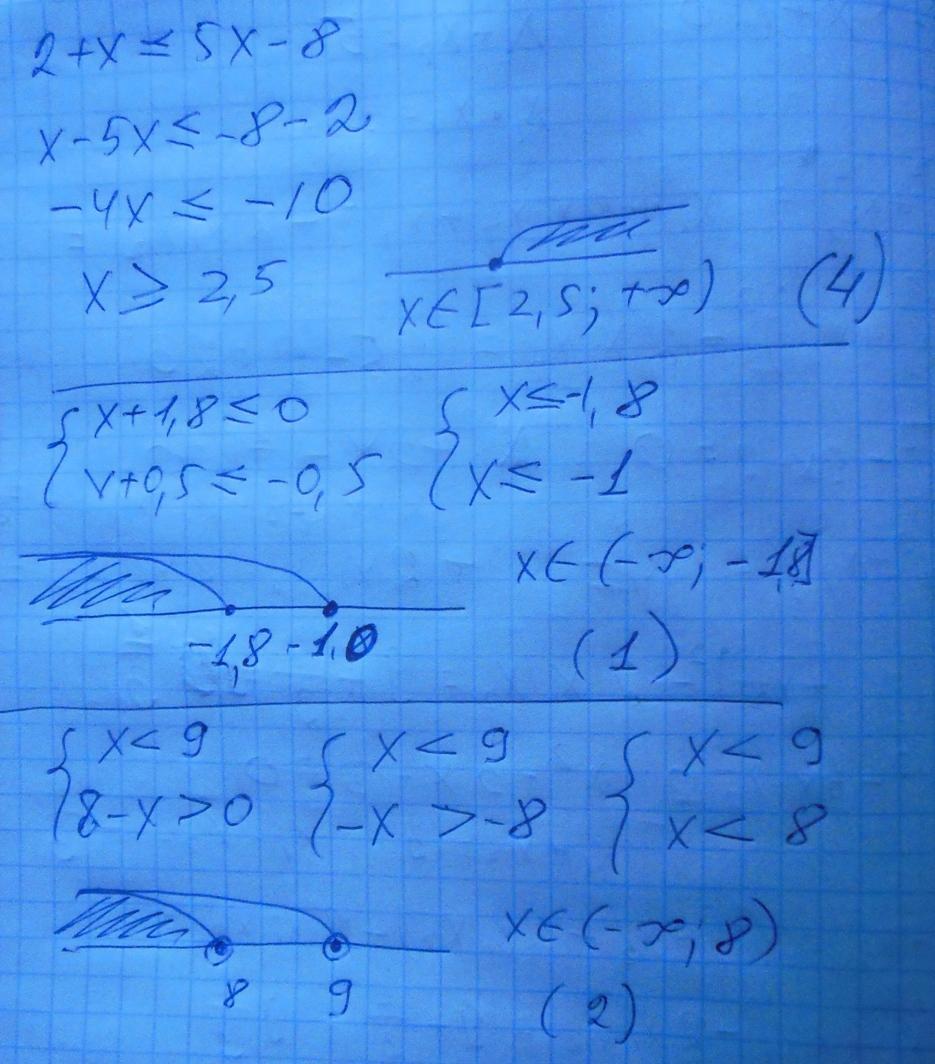 2+x ≤ 5x-8
x-5x ≤ -8-2
-4x ≤ -10
x ≥ 2,5
x∈[2,5; +∞) (4)
{ x+1,8 ≤ 0 { x ≤ -1,8
{ x+0,5 ≤ -0,5 { x ≤ -1
x∈(-∞; -1,8]
-1,8 -1,0 (1)
{ x < 9 { x < 9 { x < 9
{ 8-x > 0 { -x > -8 { x < 8
x∈(-∞; 8)
8 9 (2)